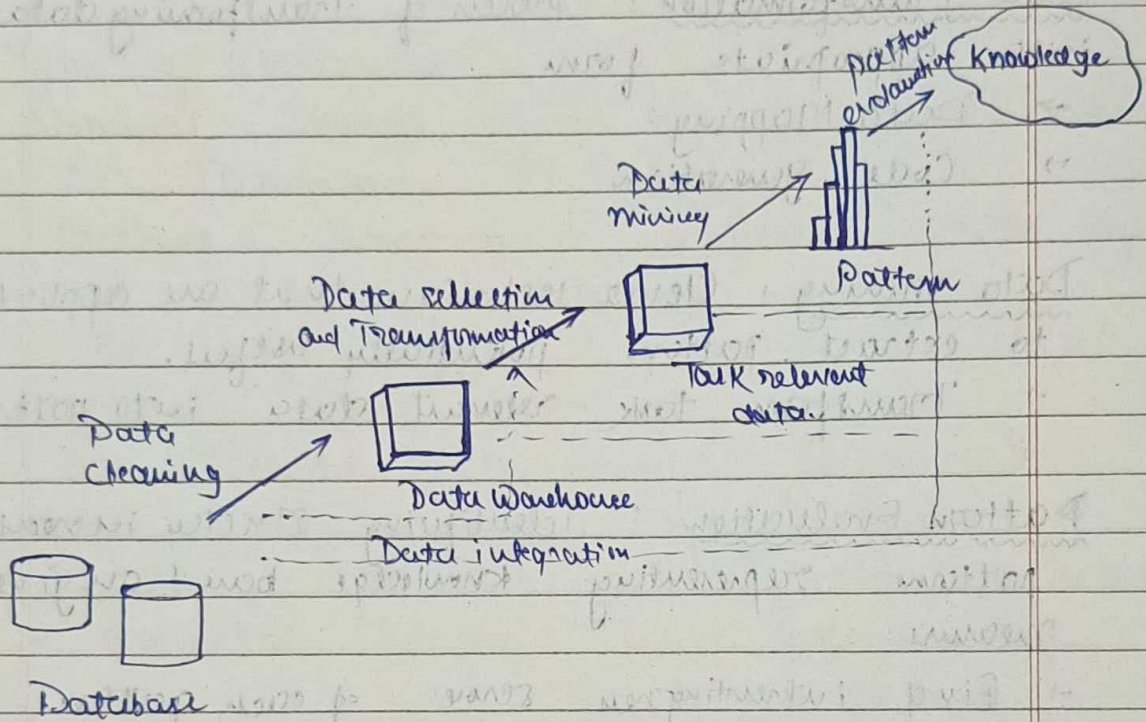 pattern
evaluation
Knowledge
Data
mining
Pattern
Data selection
and Transformation
Task relevant
data.
Data
cleaning
Data Warehouse
Data integration
Database